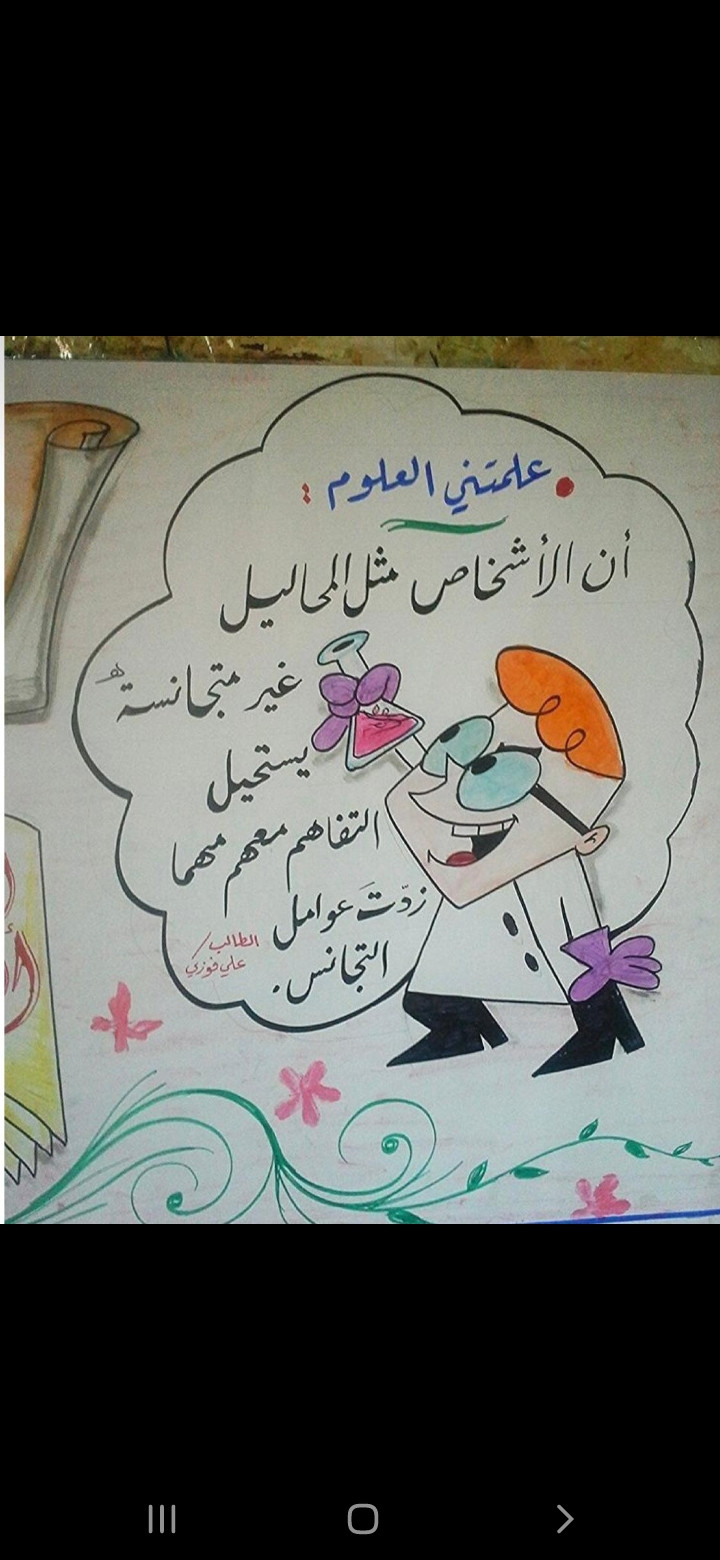 • علمتني العلوم :
أن الأشخاص مثل المحاليل
غير متجانسة
يستحيل
التفاهم معهم مهما
زدّتَ عوامل
التجانس.
الطالب /
علي فوزي